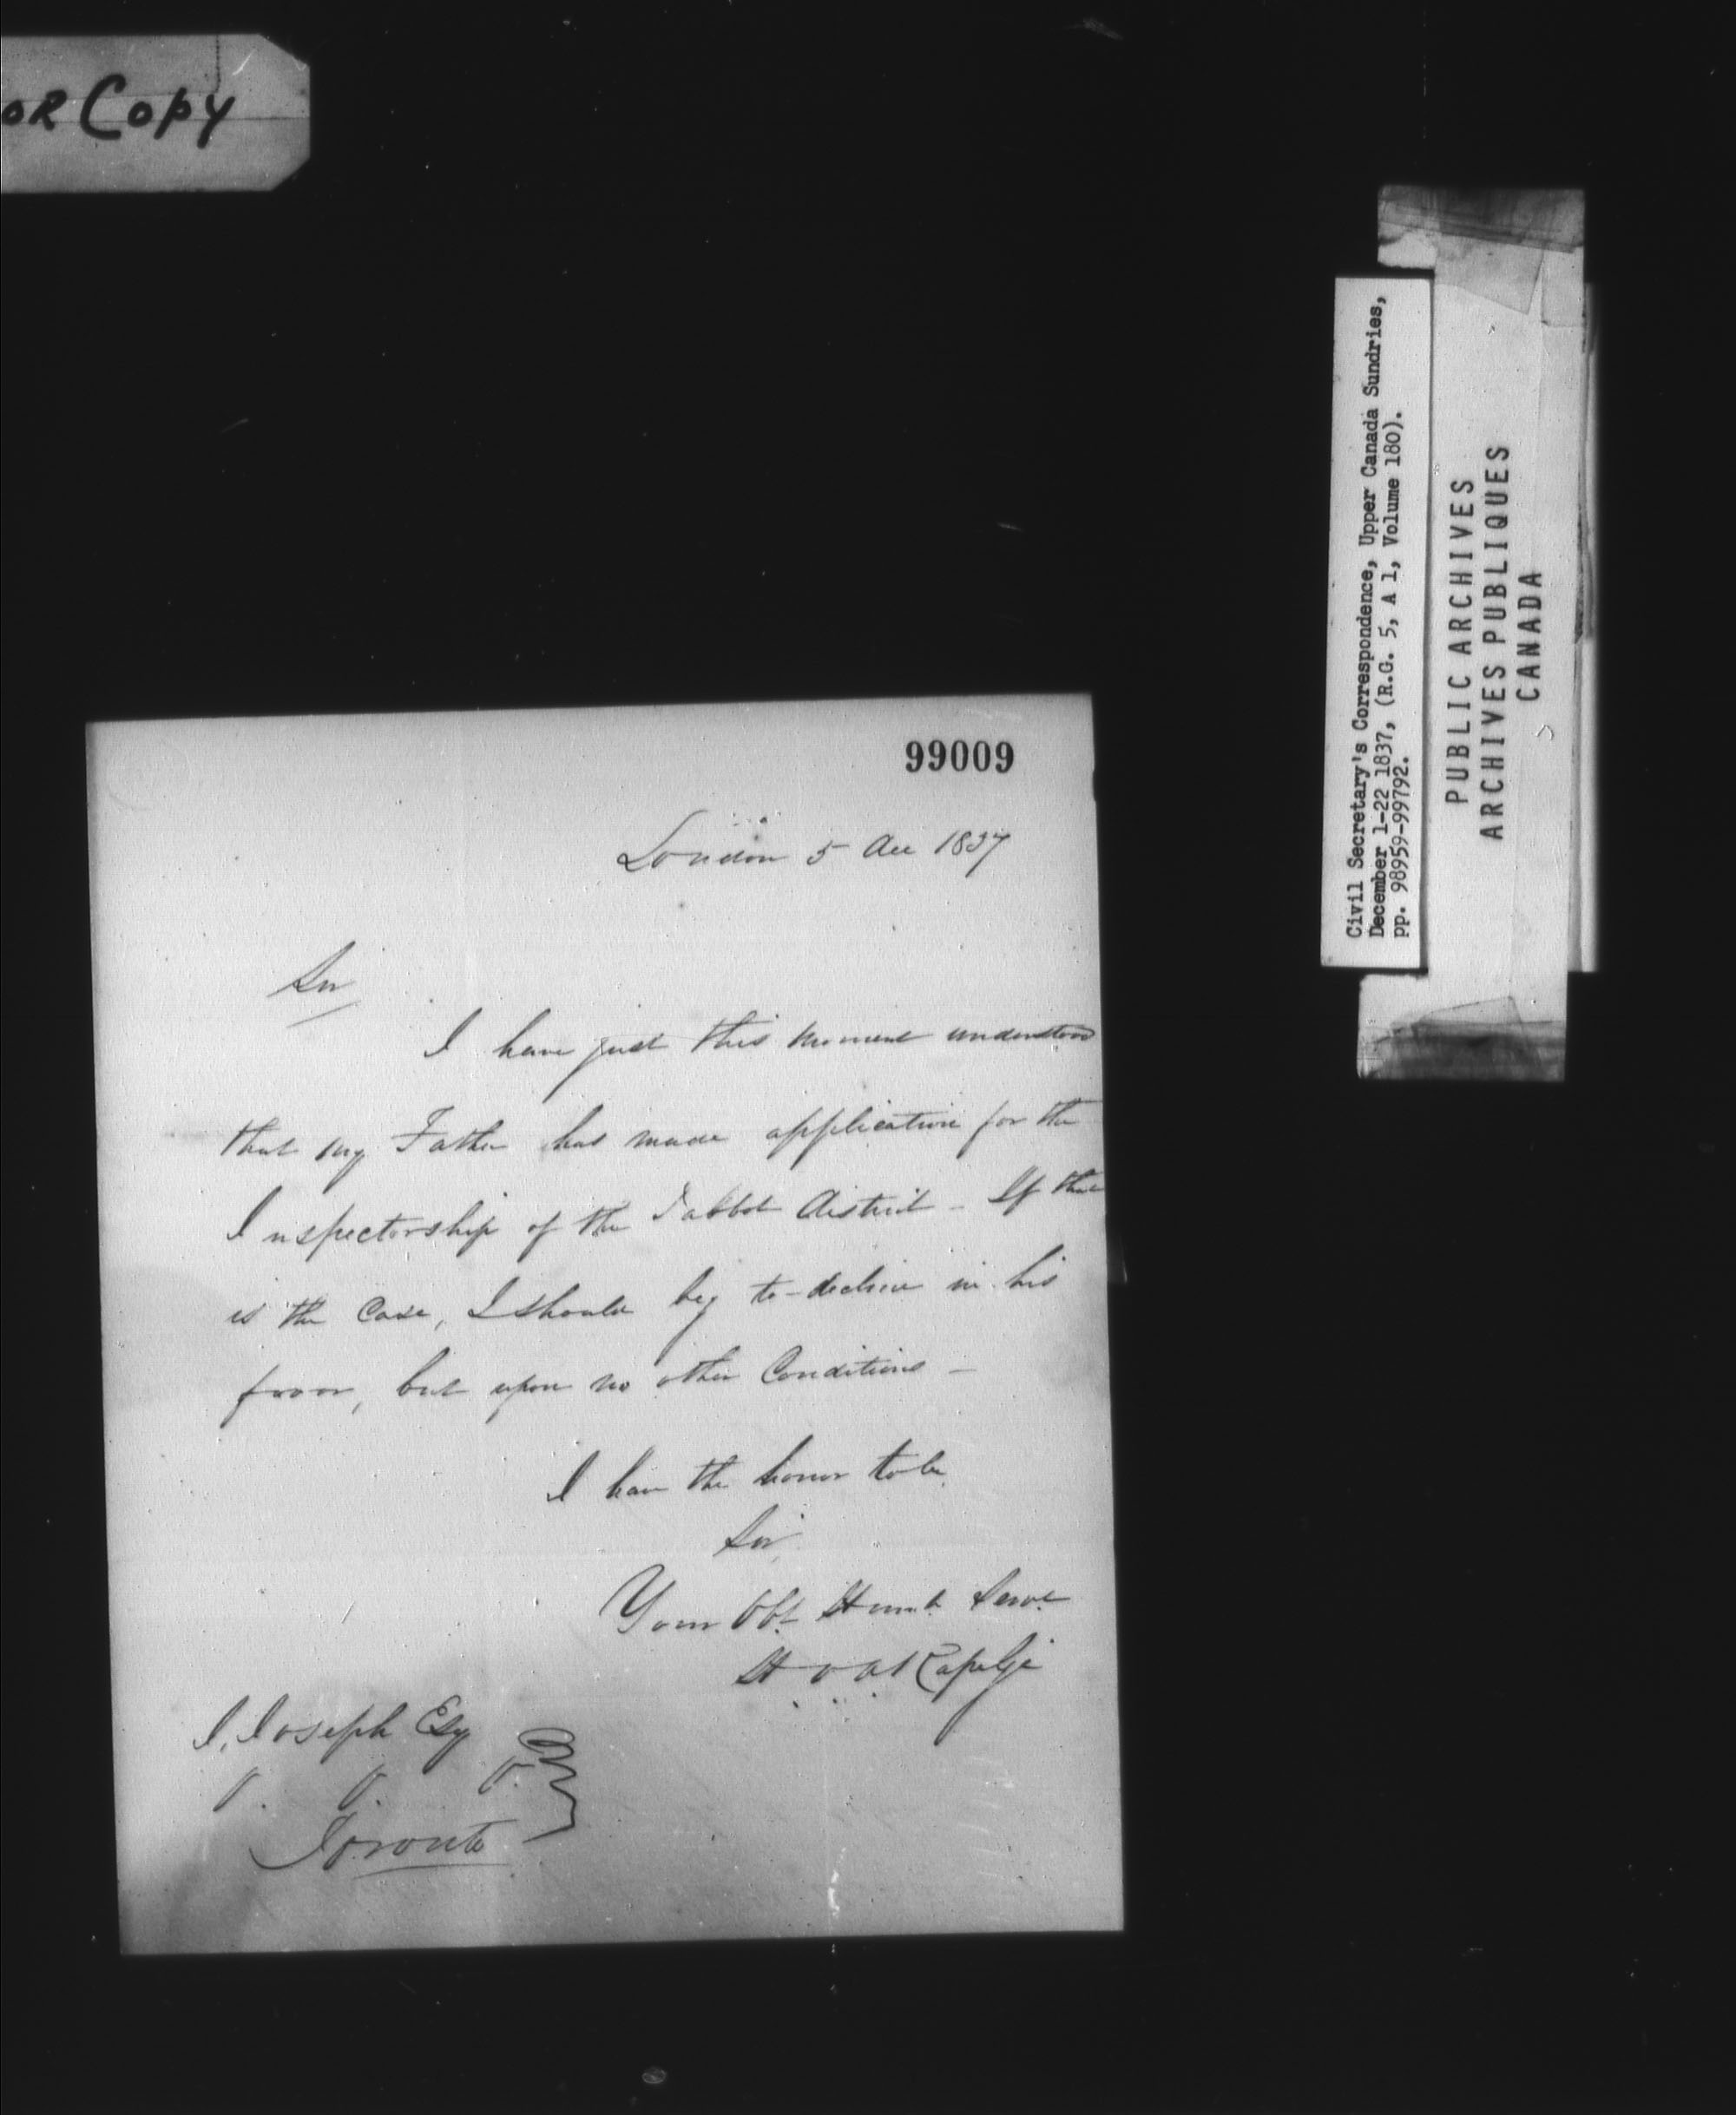 OR Copy
Civil Secretary's Correspondence, Upper Canada Sundries,
December 1-22 1837, (R.G. 5, A 1, Volume 180).
pp. 98959-99792.
PUBLIC ARCHIVES
ARCHIVES PUBLIQUES
CANADA
99009
London 5 Dec 1837
Sir
I have just this moment understood
that my Father has made application for the
Inspectorship of the Talbot District - If this
is the Case, I should beg to decline in his
favor, but upon no other Conditions -
I have the honor to be
Sir
Your Obt Humb Servt
Rapelje
J. Joseph Esq
Toronto